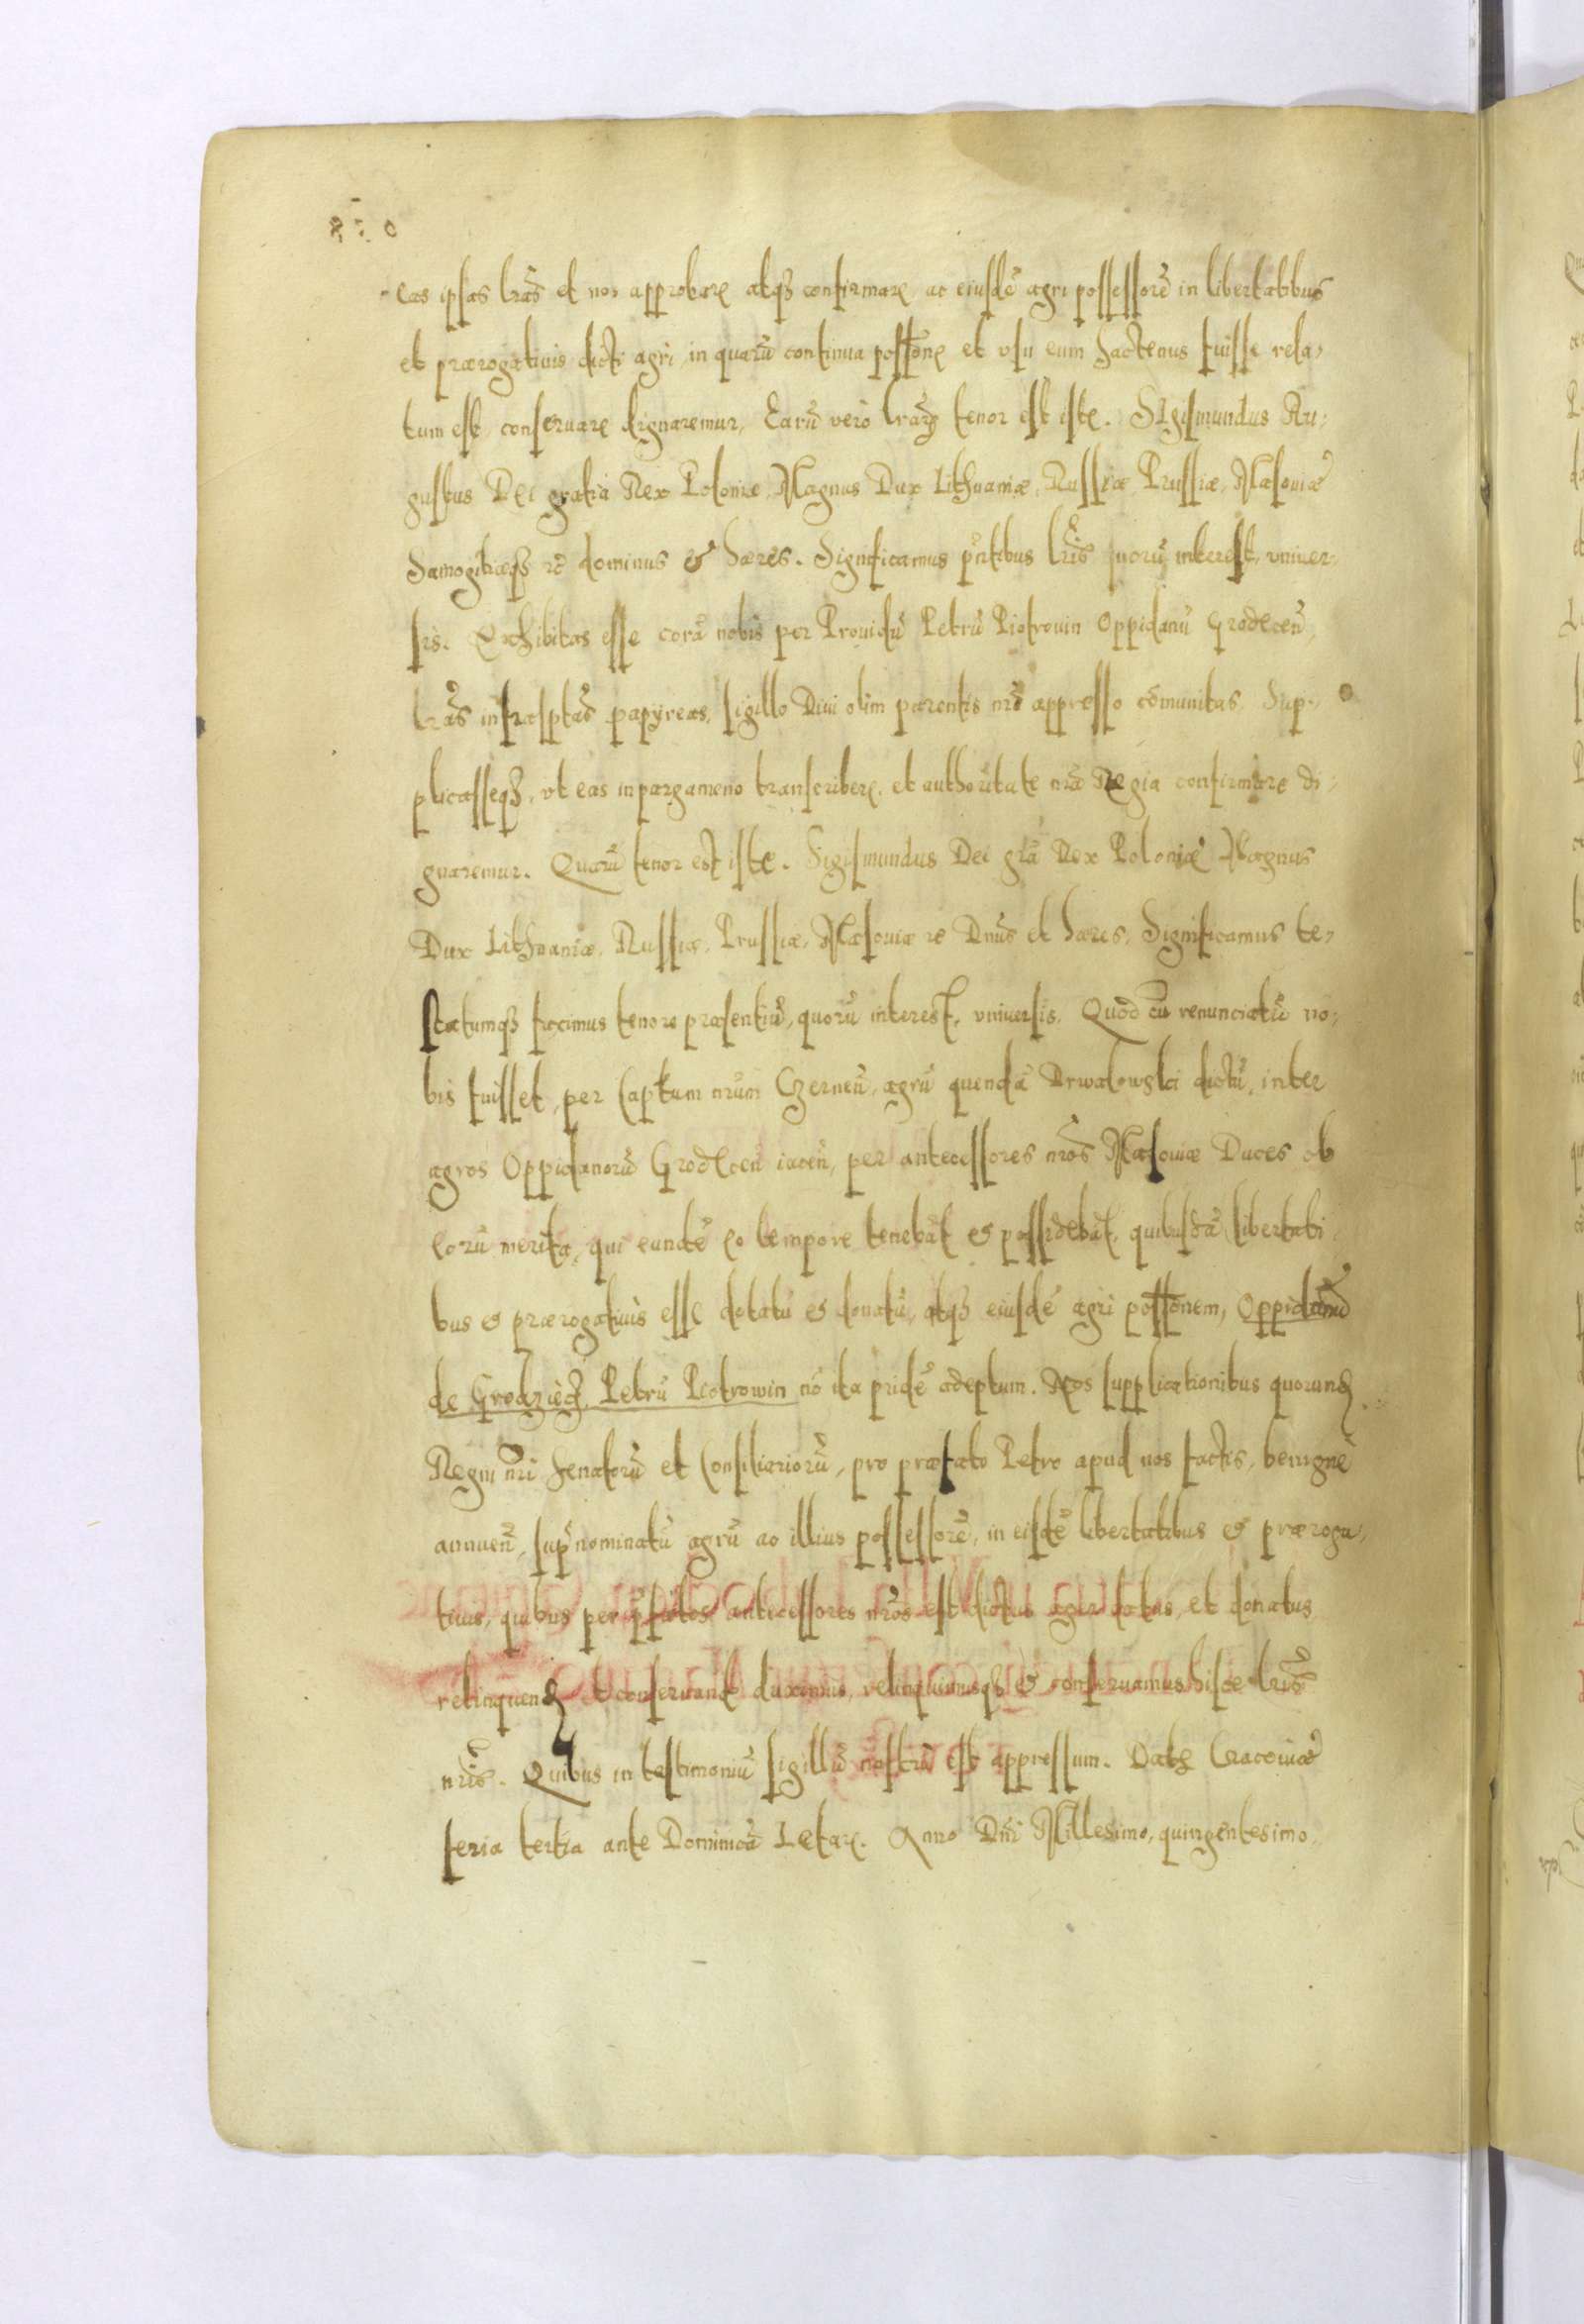 eas ipsas lr̃as et nos approbare atq3 confirmare, ac eiusdẽ agri possessorẽ in libertatibus
et prærogatiuis dicti agri, in quarũ continua possõne et vsu eum hactenus fuisse rela,
tum est, conseruare dignaremur. Earũ verò lr̃arum tenor est iste. Sigismundus Au,
gustus Dei gratia Rex Poloniæ, Magnus Dux Lithuaniæ, Russiæ, Prussiæ, Masouiæ
Samogitiæq3 rc̃ dominus et hæres. Significamus pñtibus lr̃is quorũ interest, vniuer,
sis. Exhibitas esse corã nobis per Prouidũ Petrũ Piotrouin Oppidanũ Grodecen̄,
lr̃as infrasptas papyreas, sigillo Diui olim parentis nrĩ appresso cõmunitas. Sup,
plicasseq3, vt eas in pargameno transcribere, et authoritate nrã Regia confirmare di,
gnaremur. Quarũ tenor est iste. Sigismundus Dei gr̃a Rex Poloniæ Magnus
Dux Lithuaniæ, Russiæ, Prussiæ, Masouiæ rc̃ Dnũs et hæres, Significamus te,
statumq3 facimus tenore præsentiũ, quorũ interest, vniuersis. Quòd cũ renunciatũ no,
bis fuisset, per Captum nrũm Czernen̄, agrũ quendã Drwalowski dictũ, inter
agros Oppidanorũ Grodecen̄ iacen̄, per antecessores nrõs Masouiæ Duces ob
eorũ merita, qui eundẽ eo tempore tenebãt et possidebãt, quibusdã libertati
bus et prærogatiuis esse dotatũ et donatũ, atq3 eiusdẽ agri possõnem, Oppidanũ
de Grodziecz, Petrũ Piotrowin nõ ita pridẽ adeptum. Nos supplicationibus quorund
Regni nrĩ Senatorũ et Consiliariorũ, pro præfato Petro apud nos factis, benignè
annuen̄, sup̃nominatũ agrũ ac illius possessorẽ, in eisdẽ libertatibus et præroga,
tiuis, quibus per p̃fatos antecessores nrõs est dictus ager dotatus, et donatus
relinquend et conseruand duximus, relinquimusq3 et conseruamus hisce lr̃is
nrĩs. Quibus in testimoniũ sigillũ nostrũ est appressum. Dat Cracouiæ
feria tertia ante Dominicã Letare. Anno Dnĩ Millesimo, quingentesimo